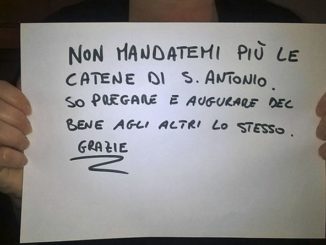 NON MANDATEMI PIÙ LE
CATENE DI S. ANTONIO.
SO PREGARE E AUGURARE DEL
BENE AGLI ALTRI LO STESSO.
GRAZIE